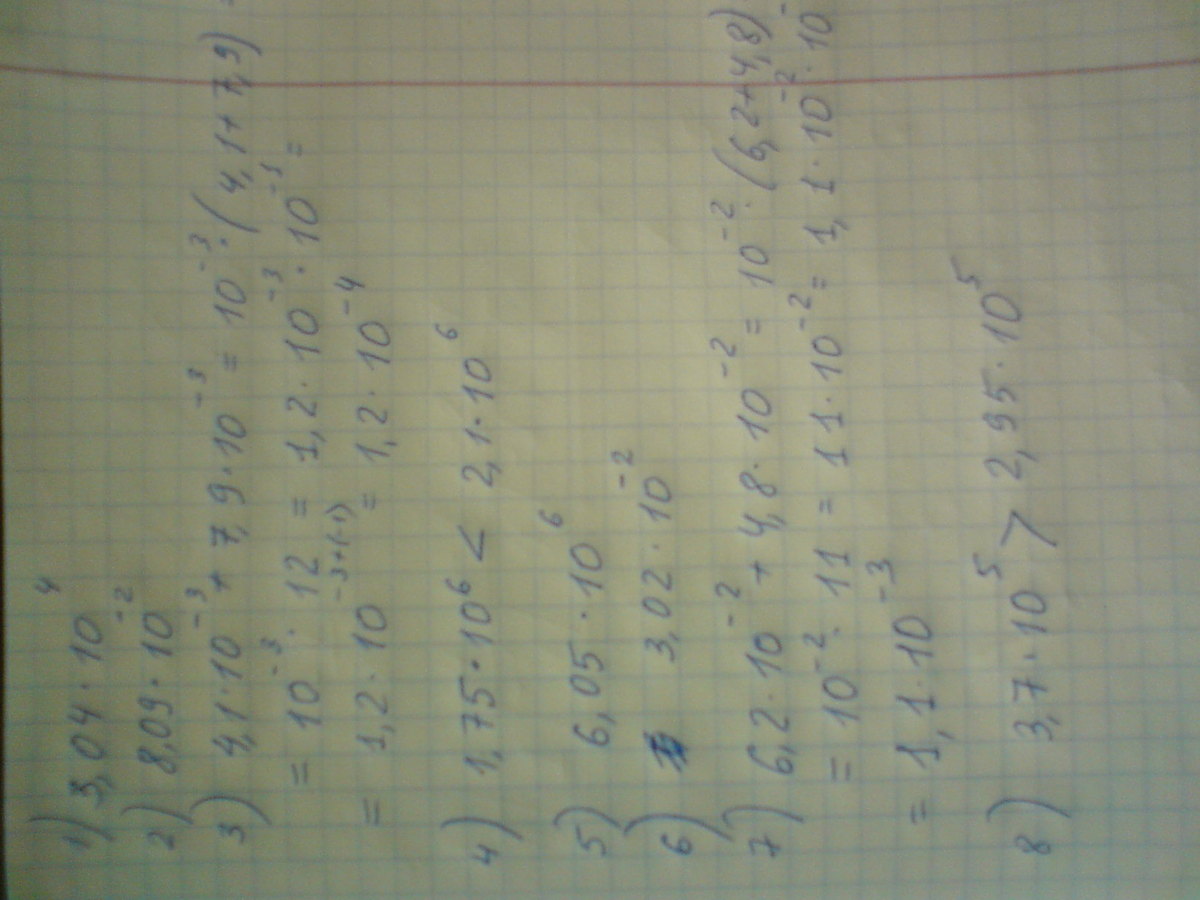 1) 3,04 · 10⁴
2) 8,09 · 10⁻²
3) 4,1 · 10⁻³ + 7,9 · 10⁻³ = 10⁻³ · (4,1 + 7,9)
= 10⁻³ · 12 = 1,2 · 10⁻³ · 10⁻¹ =
= 1,2 · 10⁻³⁺⁽⁻¹⁾ = 1,2 · 10⁻⁴
4) 1,75 · 10⁶ < 2,1 · 10⁶
5) 6,05 · 10⁶
6) 3,02 · 10⁻²
7) 6,2 · 10⁻² + 4,8 · 10⁻² = 10⁻² · (6,2 + 4,8)
= 10⁻² · 11 = 11 · 10⁻² = 1,1 · 10⁻² · 10⁻
= 1,1 · 10⁻³
8) 3,7 · 10⁵ > 2,95 · 10⁵